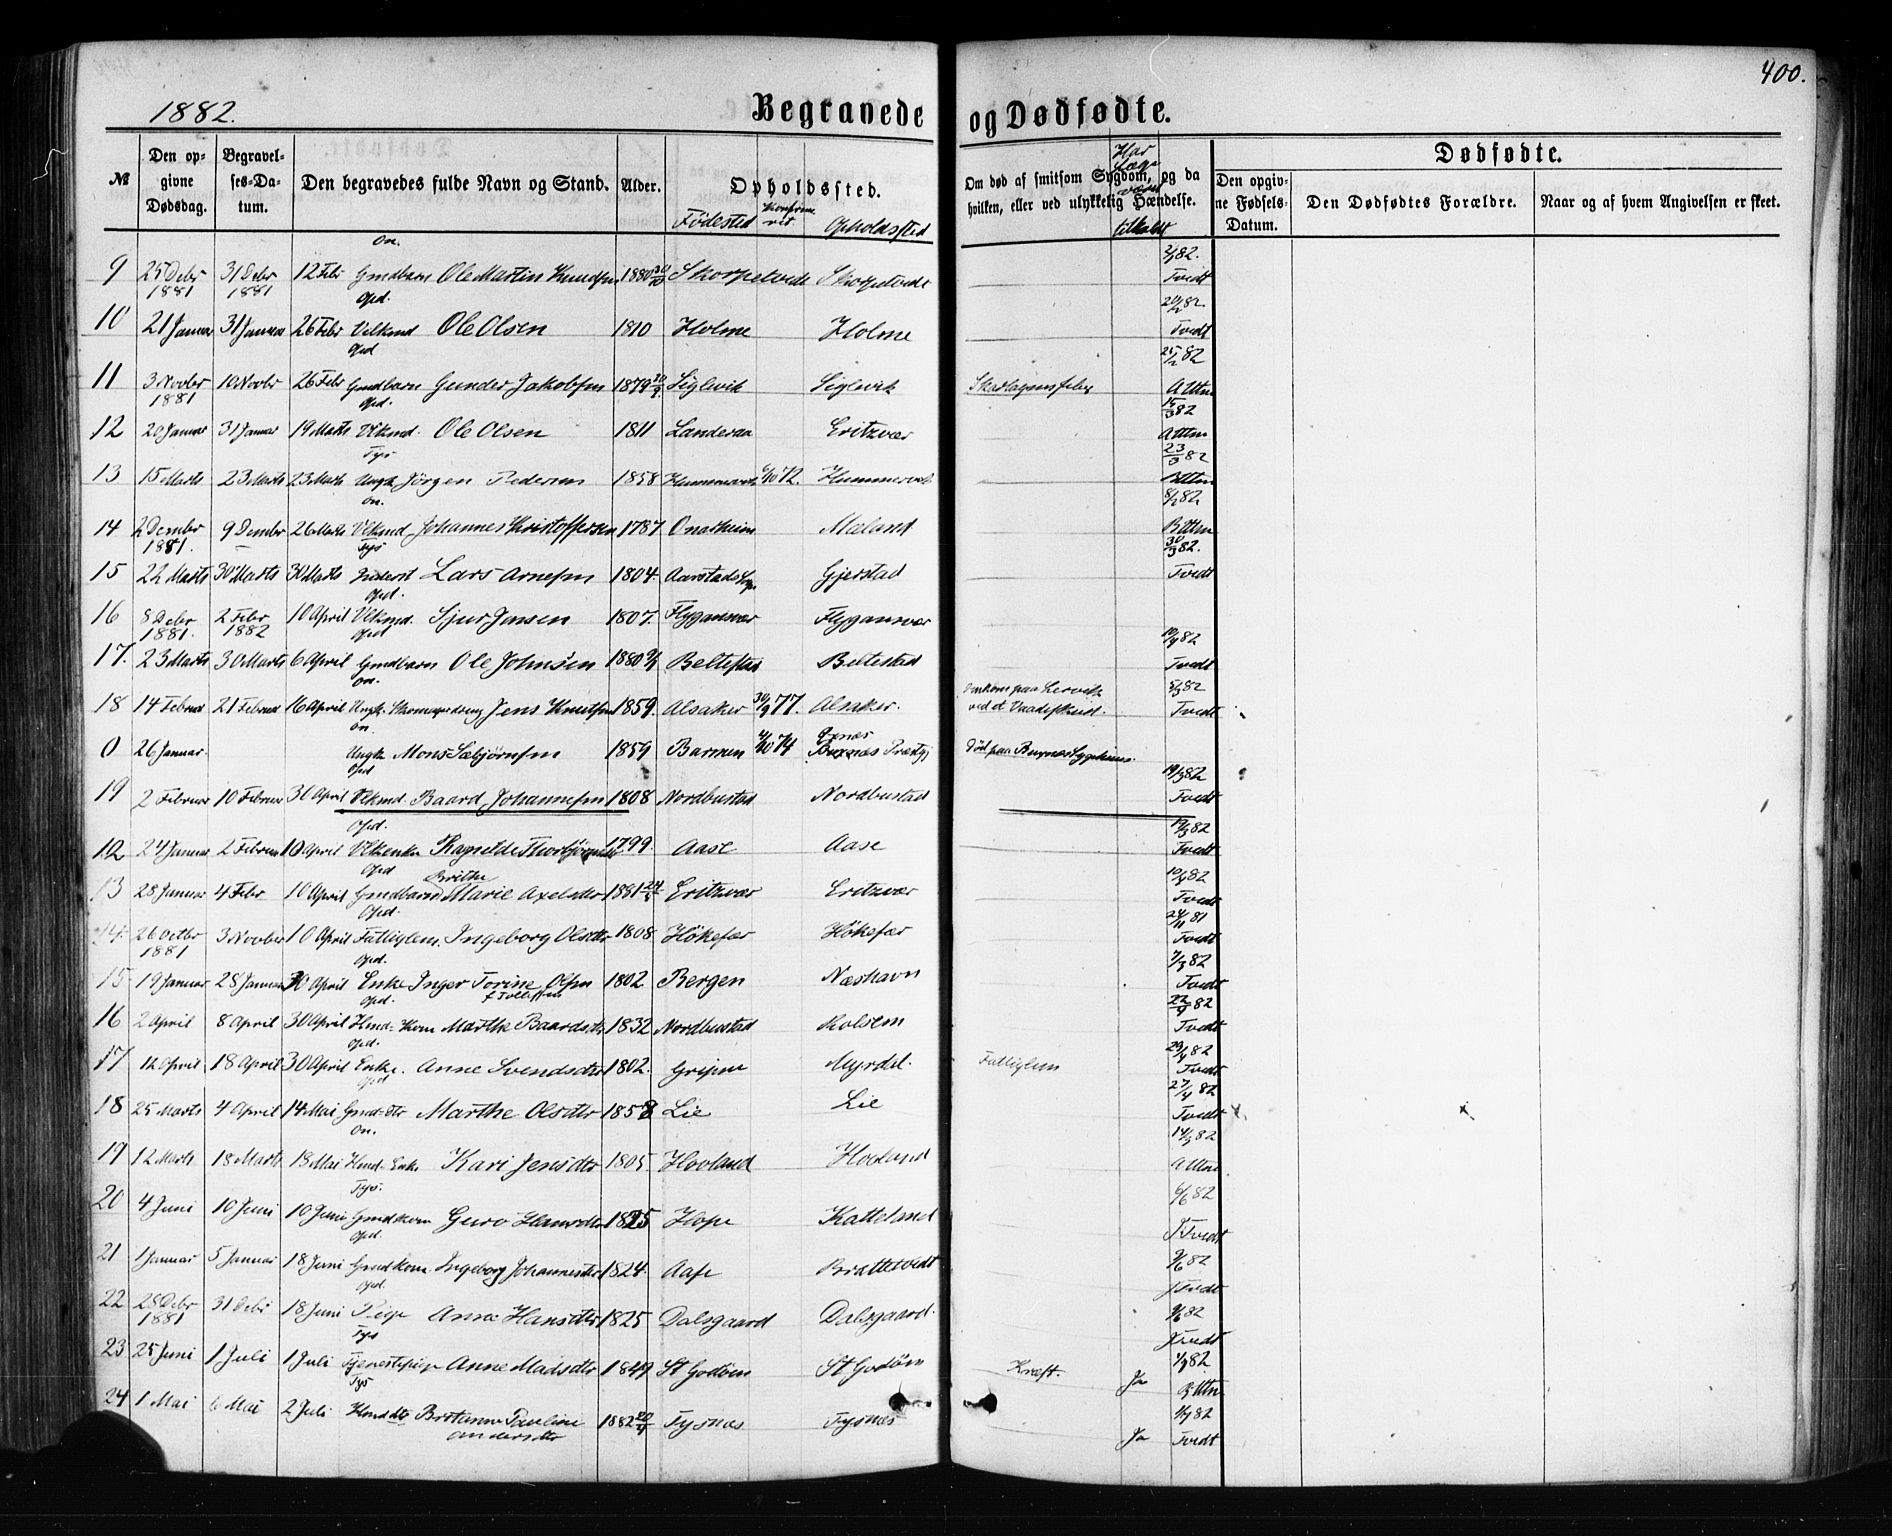 400.
1882.
Begravede og Dødfødte.
№ Den opgivne Dødsdag. Begravelses-Datum. Den begravedes fulde Navn og Stand. Alder. Opholdssted.
Fødested Konfirmeret Opholdssted
Om død af smitsom Sygdom, og da hvilken, eller ved ulykkelig Hændelse. Har Læge været tilkaldt
Dødfødte.
Den opgivne Fødsels-Datum. Den Dødfødtes Forældre. Naar og af hvem Angivelsen er skeet.
On. 2/1 82.
9 25 Debr 1881 31 Debr 1881 12 Febr Gmdbarn Ole Martin Knudsen 1880 Skorpetvedt Skorpetvedt Tvedt
Opd.
10 21 Januar 31 Januar 26 Febr Vlkmd Ole Olsen 1810 Holme Holme Tvedt
Opd
11 3 Novbr 1881 10 Novbr 26 Febr Gmdbarn Gunder Jakobsen 1879 Siglevik Siglevik Skarlagensfeber
Opd. 15/3 82
12 20 Januar 31 Januar 19 Marts Vlkmd. Ole Olsen 1811 Landeraa Eritzvær
Tys 23/3 82
13 15 Marts 23 Marts 23 Marts Ungk Jörgen Pedersen 1858 Hummervik 72. Hummervik
On.
14 2 Decmber 1881. 9 Decmber 26 Marts Vlkmd. Johannes Kristoffersen 1787 Onarheim Mæland
Tys 30/3 82.
15 22 Marts 30 Marts 30 Marts Inderst Lars Arnesen 1804. Aarstad Gjerstad Tvedt
Opd.
16 8 Debr 1881. 2 Febr 1882 10 April Vlkmd. Sjur Jensen 1807. Flygansvær Flygansvær
Opd 10/4 82
17. 23 Marts 30 Marts 6 April Gmdbarn Ole Johnsen 1880 Beltestad Beltestad Tvedt
On. 5/3 82
18 14 Februar 21 Februar 16 April Ungk. Jens Knutsen 1859. Alsaker 30/9 77. Alsaker. Omkom paa Lervik ved et Vaadeskud. Tvedt
On
0 26 Januar. Ungk Mons Sæbjørnsen 1859 Barmen 74 Bremnes Prestgj Død paa Sygehuus.
Opd 19/3 82
19 2 Februar 10 Februar 30 April Vlkmd. Baard Johannesen 1808 Nordbustad Nordbustad Tvedt
Opd. 19/3 82
12 24 Januar 2 Februar 10 April Vlkenke Ragnilde Thorbjörnsdtr 1799. Aase Aase Tvedt
Opd Brithe 10/4 82
13 28 Januar 4 Febr 10 April Gmdbarn Marie Axelsdtr 1881 Eritzvær Eritzvær Tvedt
Opd. 24/11 81
14. 26 Octbr 1881 3 Novber 10 April Fattiglem. Ingeborg Olsdtr 1808 Hökefær Hökefær Tvedt
Opd. 7/3 82
15 19 Januar 28 Januar 30 April Enke Inger Torine Olsen 1802 Bergen Næshavn Tvedt
Opd. f Tollefsen
16 2 April 8 April 30 April Hmd-Kone Marthe Baardsdtr 1832 Nordbustad Kolsem Tvedt
Opd. 29/4 82
17 12 April 18 April 30 April Enke. Anne Svendsdtr 1802. Gripne Myrdal. Fattiglem Tvedt
Opd 27/4 82
18 25 Marts 4 April 14 Mai Gmd-dtr Marthe Olsdtr 1858 Lie Lie Tvedt
On. 14/3 82
19 12 Marts 18 Marts 18 Mai Hmd-Enke Kari Jensdtr 1805. Hovland Hovland
Tys. 6/6 82
20 4 Juni 10 Juni 10 Juni Gmdkone Guro Hansdtr 1825 Hope Katteland Tvedt
Opd.
21 1 Januar 5 Januar 18 Juni Gmdkone Ingeborg Johannesdtr 1824. Aase Brattetvedt Tvedt
Opd.
22 28 Debr 1881 31 Debr 18 Juni Pige Anna Hansdtr 1825 Dalsgaard Dalsgaard. Tvedt
Tys 1/7 82
23 25 Juni 1 Juli 1 Juli Tjenestepige Anne Madsdtr 1849 St Godöen St Godöen Kræft. Ja
Tys
24 1 Mai 6 Mai 2 Juli Hmddtr Bertanne Pauline Andersdtr 1882 Tysnæs Tysnæs Ja Tvedt